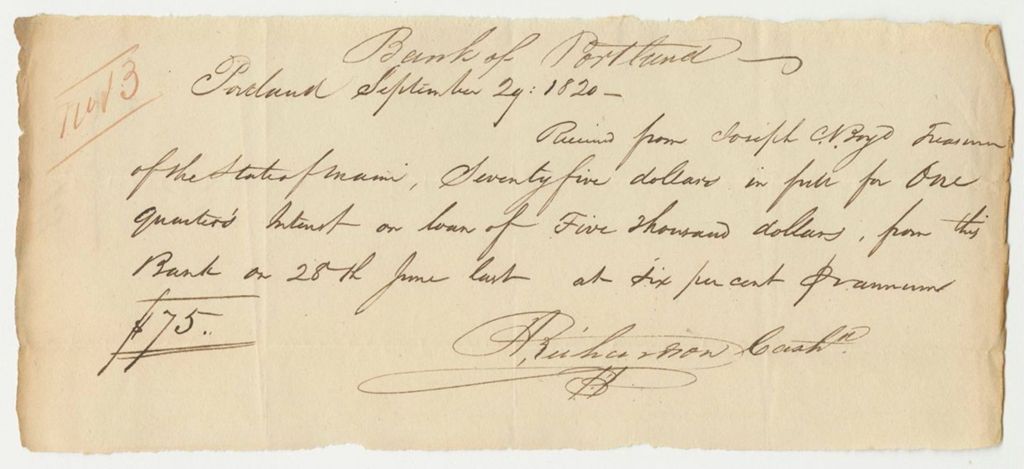 No 13
Bank of Portland
Portland September 29: 1820 —
Received from Joseph C. Boyd Treasurer
of the State of Maine, Seventy five dollars in full for One
quarters' Interest on loan of Five thousand dollars, from this
Bank on 28th June last at six per cent ⅌ annum
$75..
A, Richardson Cashr.